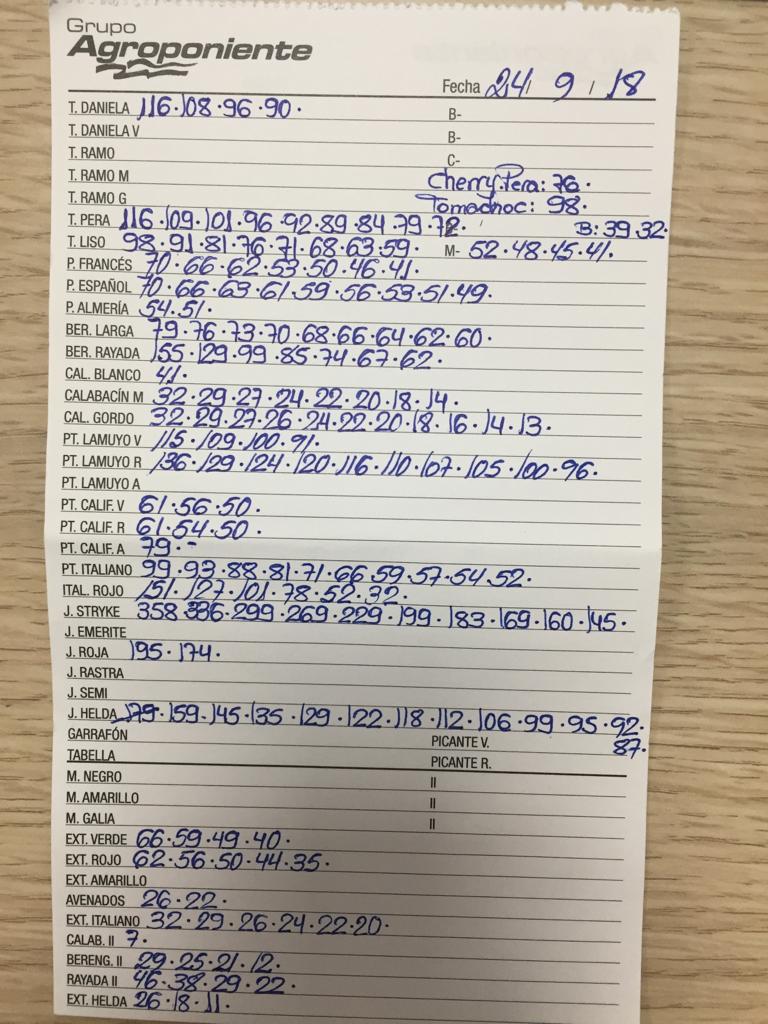 Grupo
Agroponiente
Fecha 24 / 9 / 18
T. DANIELA 116.108.96.90. B-
T. DANIELA V B-
T. RAMO C-
T. RAMO M Cherry Pera: 76.
T. RAMO G Tomachoc: 98.
T. PERA 116.109.101.96.92.89.84.79.72. B: 39.32.
T. LISO 98.91.81.76.71.68.63.59. M- 52.48.45.41.
P. FRANCÉS 70.66.62.53.50.46.41.
P. ESPAÑOL 70.66.63.61.59.56.53.51.49.
P. ALMERÍA 54.51.
BER. LARGA 79.76.73.70.68.66.64.62.60.
BER. RAYADA 155.129.99.85.74.67.62.
CAL. BLANCO 41.
CALABACÍN M 32.29.27.24.22.20.18.14.
CAL. GORDO 32.29.27.26.24.22.20.18.16.14.13.
PT. LAMUYO V 115.109.100.91.
PT. LAMUYO R 136.129.124.120.116.110.107.105.100.96.
PT. LAMUYO A
PT. CALIF. V 61.56.50.
PT. CALIF. R 61.54.50.
PT. CALIF. A 79.-
PT. ITALIANO 99.93.88.81.71.66.59.57.54.52.
ITAL. ROJO 151.127.101.78.52.32.
J. STRYKE 358.336.299.269.229.199.183.169.160.145.
J. EMERITE
J. ROJA 195.174.
J. RASTRA
J. SEMI
J. HELDA 179.159.145.135.129.122.118.112.106.99.95.92.
GARRAFÓN PICANTE V. 87.
TABELLA PICANTE R.
M. NEGRO II
M. AMARILLO II
M. GALIA II
EXT. VERDE 66.59.49.40.
EXT. ROJO 62.56.50.44.35.
EXT. AMARILLO
AVENADOS 26.22.
EXT. ITALIANO 32.29.26.24.22.20.
CALAB. II 7.
BERENG. II 29.25.21.12.
RAYADA II 46.38.29.22.
EXT. HELDA 26.18.11.